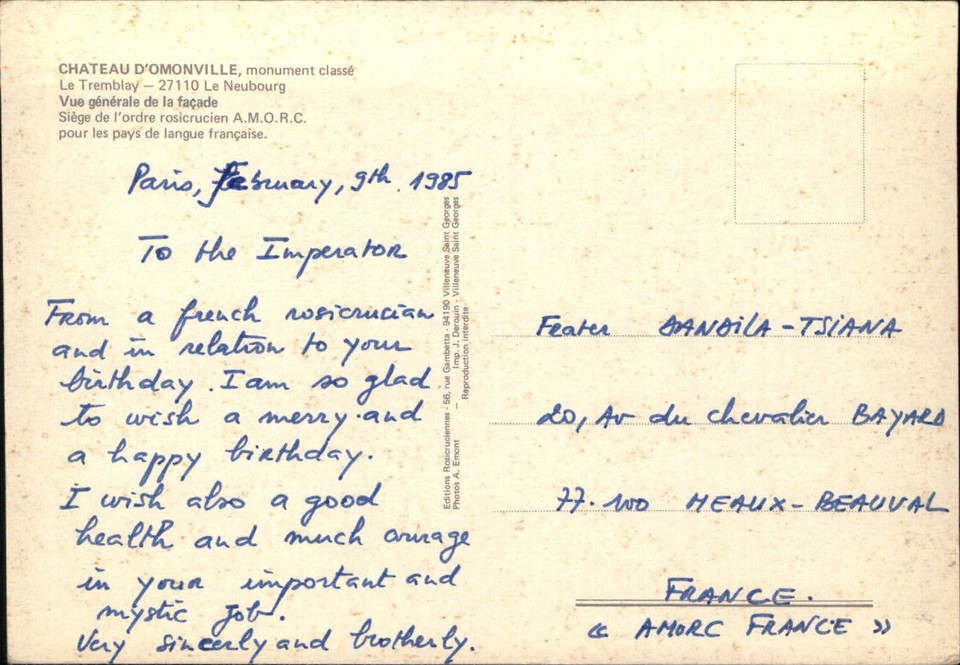 CHATEAU D'OMONVILLE, monument classé
Le Tremblay — 27110 Le Neubourg
Vue générale de la façade
Siège de l'ordre rosicrucien A.M.O.R.C.
pour les pays de langue française.
Paris, February, 9th. 1985
To the Imperator
From a french rosicrucian
and in relation to your
birthday. I am so glad
to wish a merry and
a happy birthday.
I wish also a good
health and much courage
in your important and
mystic job.
Very sincerly and brotherly.
Editions Rosicruciennes - 56, rue Gambetta - 94190 Villeneuve Saint Georges
Photos A. Emont — Imp. J. Derouin - Villeneuve Saint Georges
Reproduction interdite
Frater -TSIANA
20, Av du chevalier BAYARD
77.100 MEAUX-BEAUVAL
FRANCE.
« AMORC FRANCE »